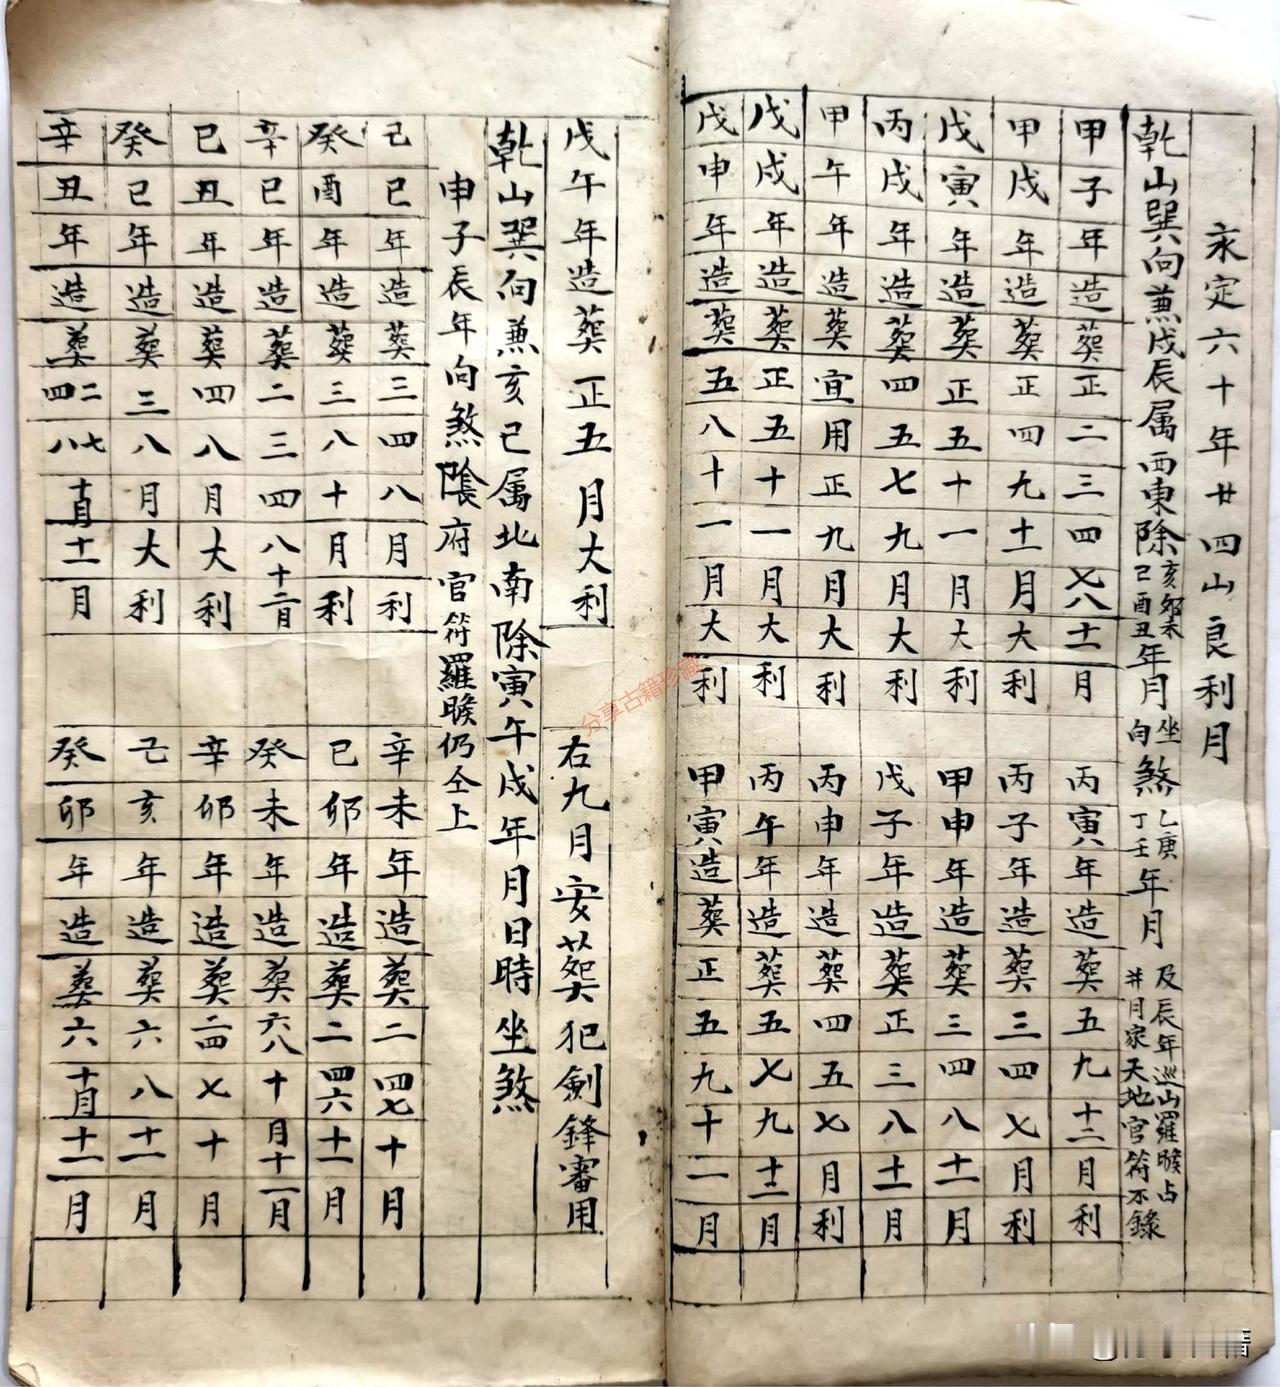 永定六十年廿四山良利月
乾山巽向兼戌辰属西東除亥夘未己酉丑年月坐向煞乙庚丁壬年月及辰年巡山羅睺占并月家天地官符不錄
甲子年造葬正二三四七八十一月
丙寅年造葬五九十二月利
甲戌年造葬正四九十一月大利
丙子年造葬三四七月利
戊寅年造葬正五十一月大利
甲申年造葬三四八十一月
丙戌年造葬四五七九月大利
戊子年造葬正三八十一月
甲午年造葬宜用正九月大利
丙申年造葬四五七月利
戊戌年造葬正五十一月大利
丙午年造葬五七九十二月
戊申年造葬五八十一月大利
甲寅造葬正五九十一月
戊午年造葬正五月大利
右九月安葬犯劍鋒審用
乾山巽向兼亥己属北南除寅午戌年月日時坐煞
申子辰年向煞陰府官符羅睺仍仝上
己巳年造葬三四八月利
辛未年造葬二四七十月
癸酉年造葬三八十月利
己卯年造葬二四六十一月
辛巳年造葬二三四八十二月
癸未年造葬六八十月十一月
己丑年造葬四八月大利
辛卯年造葬二四七十月
癸巳年造葬三八月大利
己亥年造葬六八十一月
辛丑年造葬二四七八十月十一月
癸卯年造葬六十月十一月
分享古籍珍藏